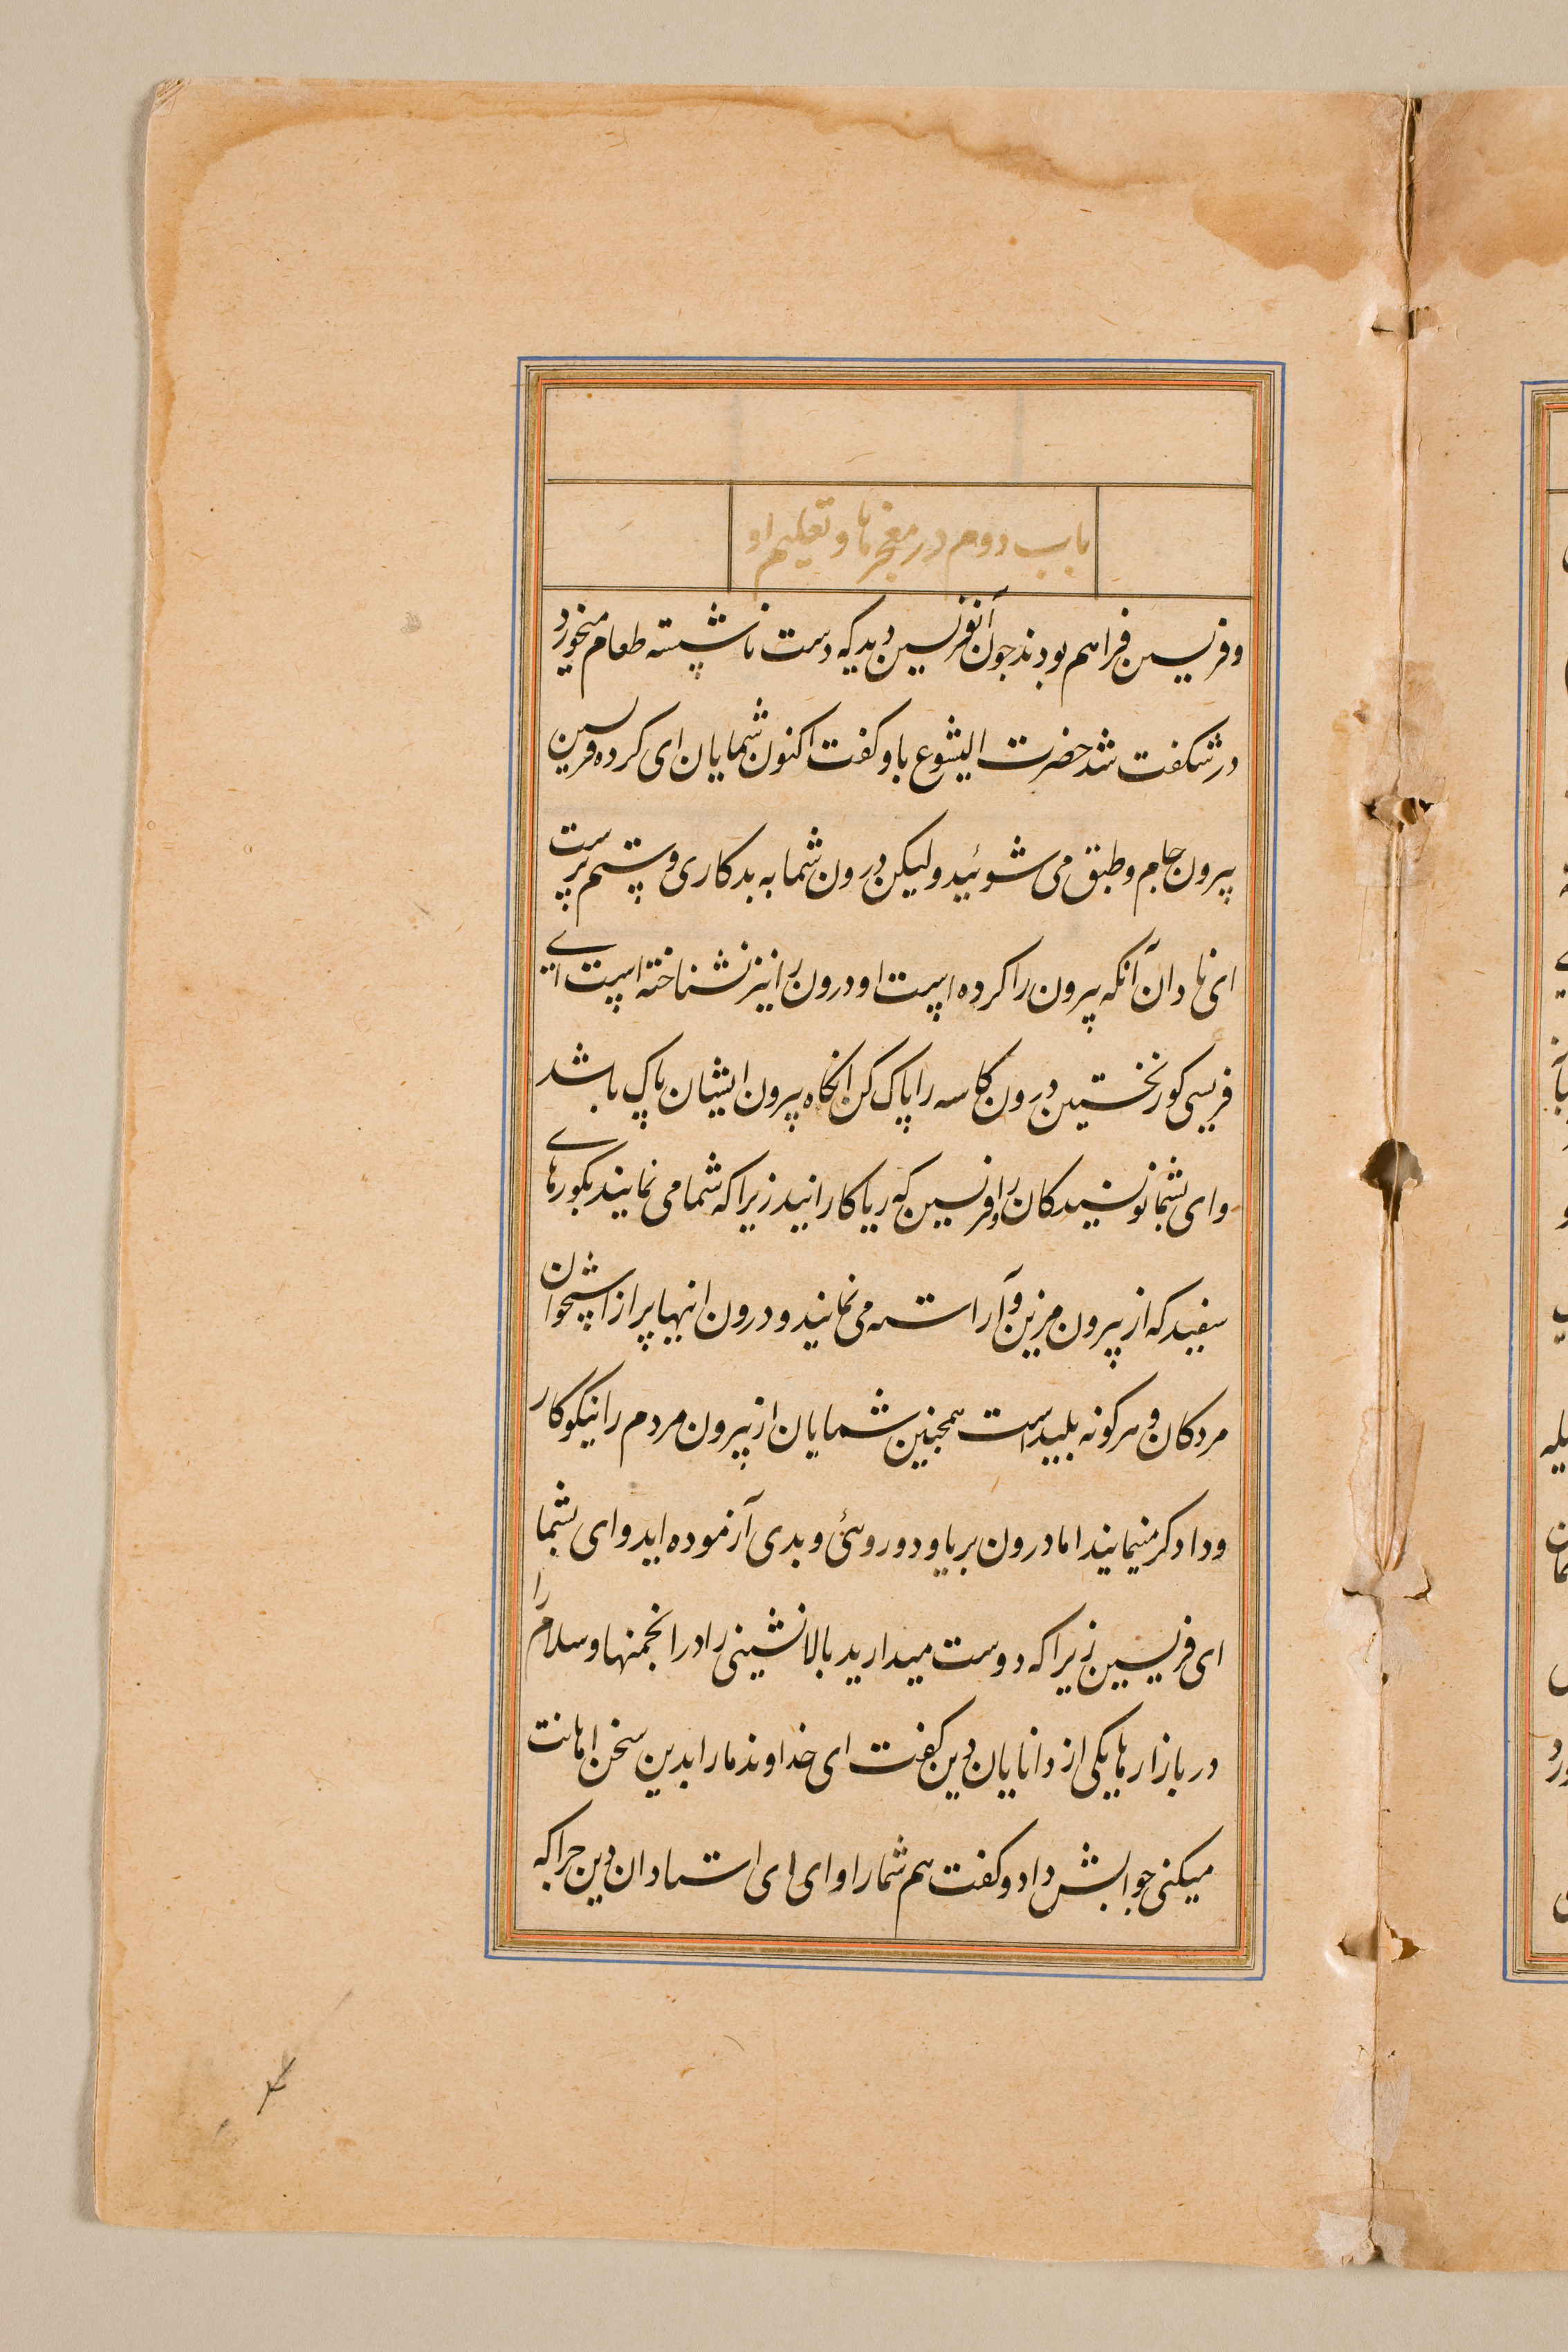 باب دوم در معجزها و تعلیم او
و فریسین فراهم بودند چون آنفریسین دید که دست ناشسته طعام میخورد
در شکفت شد حضرت الیشوع باو کفت اکنون شمایان ای کرده فریسین
بیرون جام و طبق می شوئید ولیکن درون شما به بدکاری و ستم پرست
ای نادان آنکه بیرون را کرده است او درون را نیز نشناخته است ای
فریسی کور نخستین درون کاسه را پاک کن انکاه بیرون ایشان پاک باشد
وای بشما نویسندکان و فریسین که ریاکارانید زیرا که شما می نمایند بکورهای
سفید که از بیرون مزین و آراسته می نمایند و درون اینها پر از استخوان
مردکان و هر کونه پلیداست همچنین شمایان از بیرون مردم را نیکوکار
و دادکر مینمایند اما درون بریا و دوروئی و بدی آزموده اید وای بشما
ای فریسین زیرا که دوست میدارید بالانشینی را در انجمنها و سلام را
در بازارها یکی از دانایان دین کفت ای خداوند ما را بدین سخن اهانت
میکنی جوابش داد و کفت هم شما را وای ای استادان دین چرا که